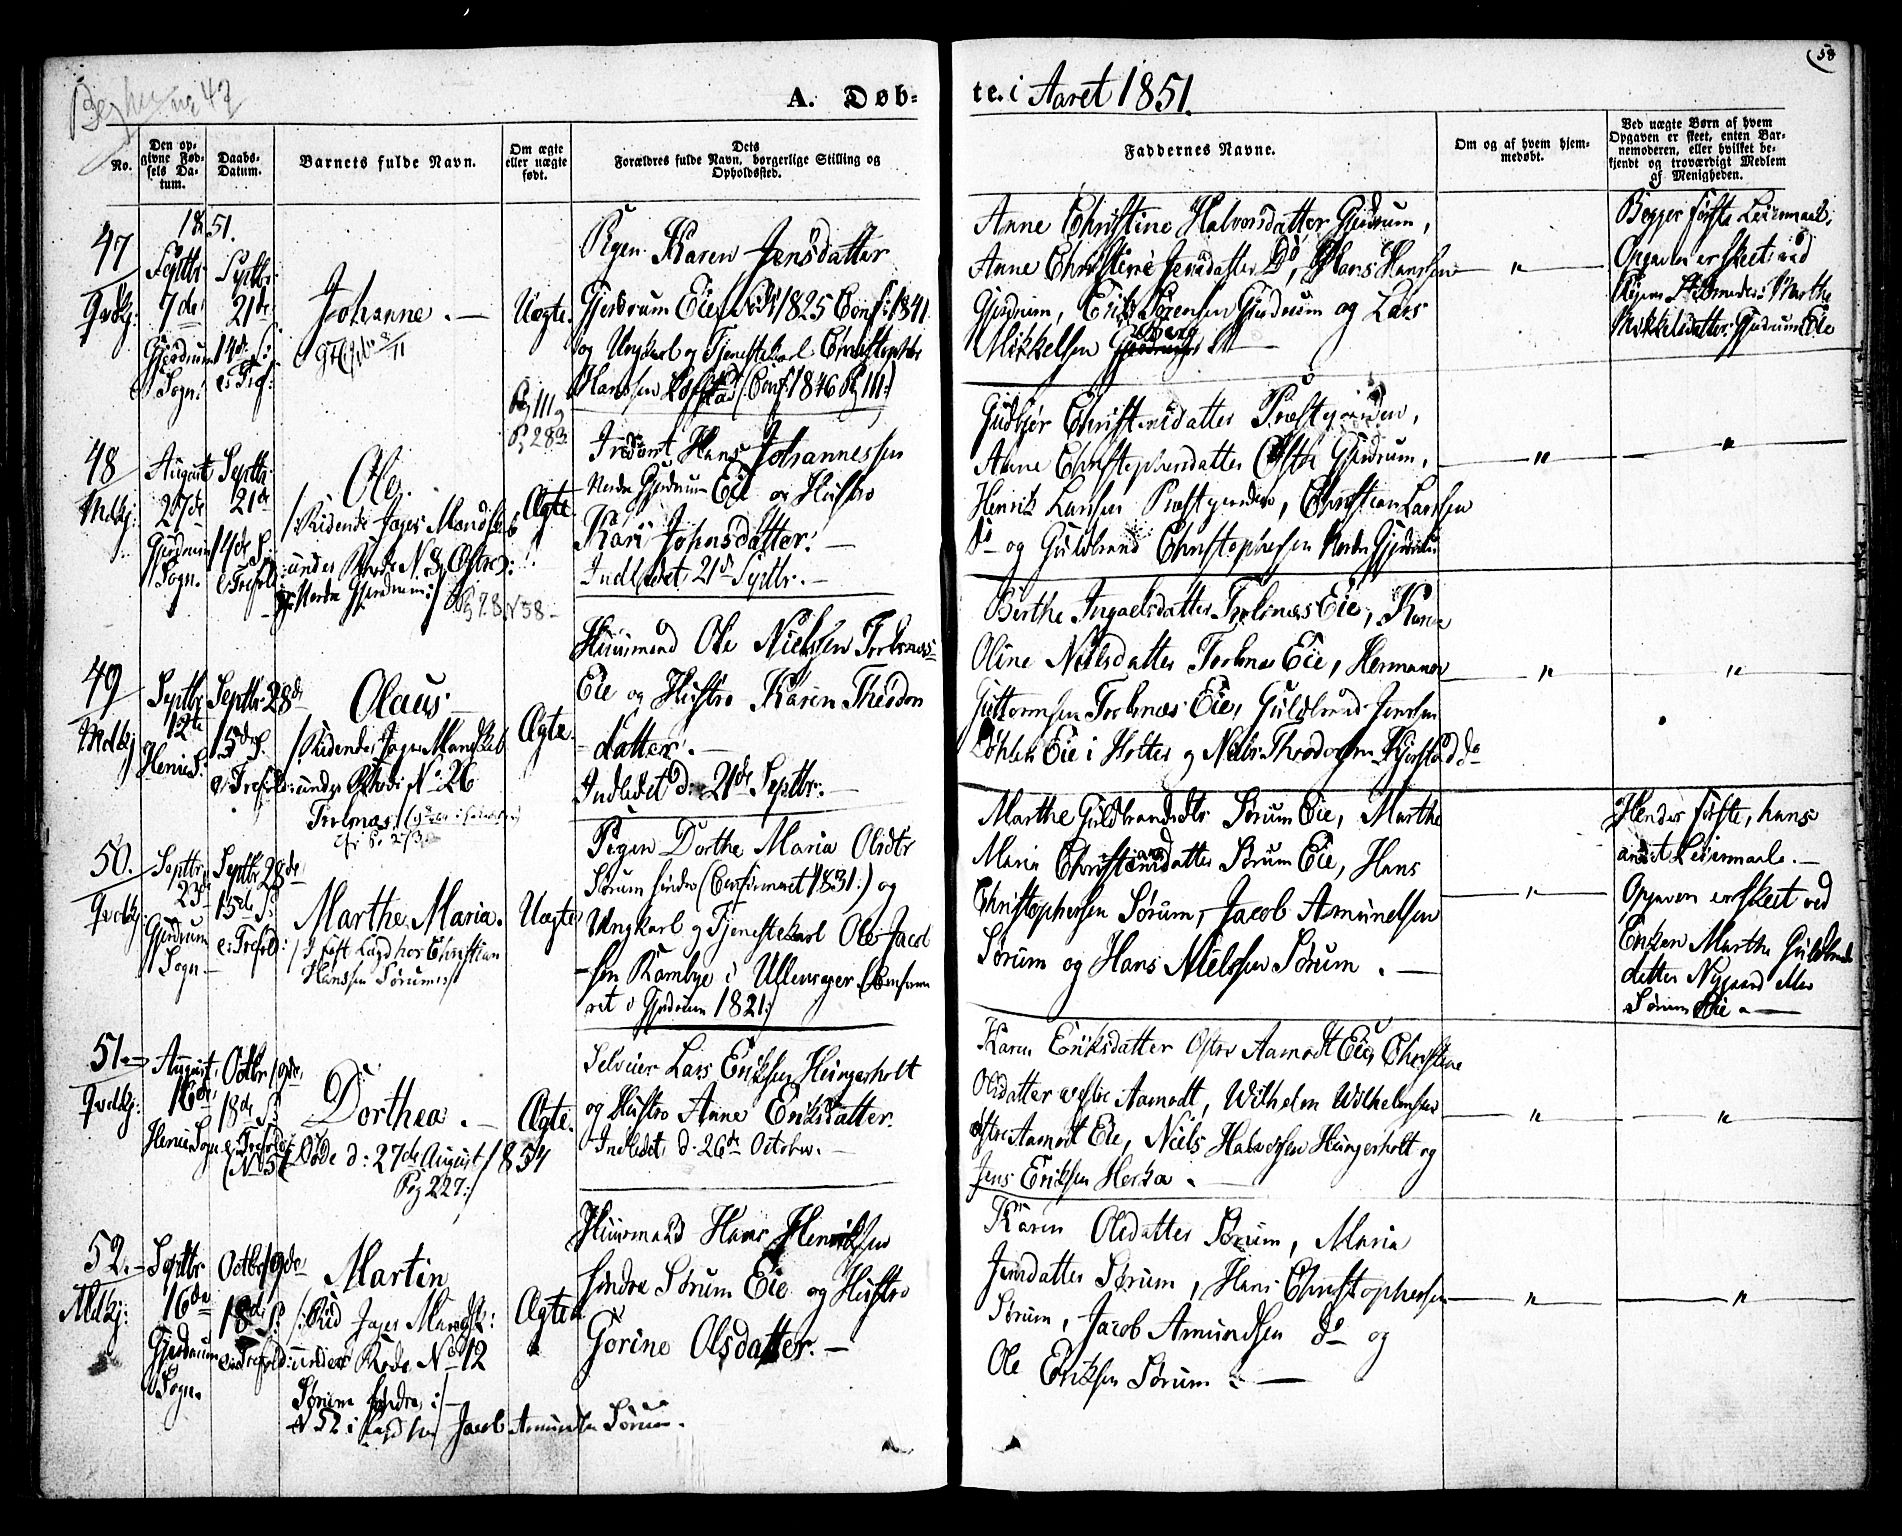 58
A. Døb-
te. i Aaret 1851.
No.
Den op-
givne Fød-
sels Da-
tum.
Daabs-
Datum.
Barnets fulde Navn.
Om ægte
eller uægte
født.
Dets
Forældres fulde Navn, borgerlige Stilling og
Opholdssted.
Faddernes Navne.
Om og af hvem hjem-
medøbt.
Ved uægte Børn af hvem
Opgaven er skeet, enten Bar-
nemoderen, eller hvilket be-
kjendt og troværdigt Medlem
af Menigheden.
1851.
47
Qvdkj:
Septbr
7de
Gjerdrum
Sogn.
Septbr
21de
14de S:
e: Tref:
Johanne. —
Uægte.
Pg 111
Pg 283
Pigen Karen Jensdatter
Gjerdrum Eie, født 1825 Conf: 1841
og Ungkarl og Tjenestekarl Christopher
Hanssen (Conf: 1846 Pg 111:)
Anne Christine Halvorsdatter Gjerdrum,
Anne Christine Jensdatter Do, Hans Hanssen
Gjerdrum, Erik Sørensen Gjerdrum og Lars
Mikkelsen
"
Begges første Leiermaal.
Opgaven er skeet ved
Pigens Marthe
Mikkelsdatter Gjerdrum Eie
48
Mdkj:
August
27de
Gjerdrum
Sogn.
Septbr
21de
14de S:
e: Trefold:
Ole.
/: Ridende Jæger Mandskab
under Rode N 8 Østre
Nordre Gjerdrum:/
Pg 28 N 58 -
Ægte
Inderst Hans Johannessen
Nordre Gjerdrum Eie og Hustro
Kari Johnsdatter. —
Indledet, 21de Septbr. —
Gudbjør Christensdatter Præstgaarden,
Anne Christophersdatter Østre Gjerdrum,
Henrik Larssen Præstgaarden, Christian Larssen
do og Guldbrand Christophersen Nordre Gjerdrum
"
"
49
Mdkj
Septbr
12te
Heni S:
Septbr 28de
15de S.
e: Trefold:
Olaus
/: Ridende Jæger Mandskab
under Rode No 26
Ægte
Huusmand Ole Nielsen
Eie og Hustro Karen Theodor
datter. —
Indledet d: 21de Septbr. —
Berthe Ingaelsdatter Eie, Karen
Oline Nielsdatter Eie, Hermann
Guttormsen Eie, Guldbrand Jensen
Eie i Holter og Niels do
"
"
50.
Qvdkj
Septbr
23de
Gjerdrum
Sogn —
Septbr 28de
15de S:
e: Trefold:
Marthe Maria.
/: I fast Lægd hos Christian
Hanssen Sørum:/
Uægte
Pigen Dorthe Maria Olsdtr
Sørum søndre (Confirmeret 1831:) og
Ungkarl og Tjenestekarl Ole Jacob-
sen Rambye i Ullensager (Confirme-
ret i Gjerdrum 1821:)
Marthe Guldbrandsdtr Sørum Eie, Marthe
Maria Christiansdatter Sørum Eie, Hans
Christophersen Sørum, Jacob Amundsen
Sørum og Hans Nielssen Sørum. —
"
Hendes første, hans
andet Leiermaal. —
Opgaven er skeet ved
Enken Marthe Guldbrands
datter Nygaard eller
Sørum Eie. —
51.
Qvdkj:
August
16de
Heni Sogn
Octbr 19de
18de S:
e: Trefold:
(N 51
Dorthea. —
Døde d: 27de August 1854
Pag 227:/
Ægte.
Selveier Lars Eriksen Hungerholt
og Hustro Anne Eriksdatter.
Indledet d: 26de October. —
Karen Eriksdatter Østre Aamodt Eie, Christine
Olsdatter vestre Aamodt, Wilhelm Wilhelmsen
østre Aamodt Eie, Niels Halvorsen Hungerholt og
Jens Eriksen Herka.
"
"
52.
Mdkj:
Septbr
16de
Gjerdrum
Sogn.
Octbr 19de
18de S:
e: Trefold:
Martin
/: Rid Jæger Mandsk:
under Rode No 12
Sørum søndre :/
N 52 i Lægd hos Jacob Amundsen Sørum.
Ægte
Huusmand Hans Henriksen
søndre Sørum Eie og Hustro
Gorine Olsdatter. —
Karen Olsdatter Sørum, Maria
Jensdatter Sørum, Hans Christophersen
Sørum, Jacob Amundsen do og
Ole Eriksen Sørum. —
"
"